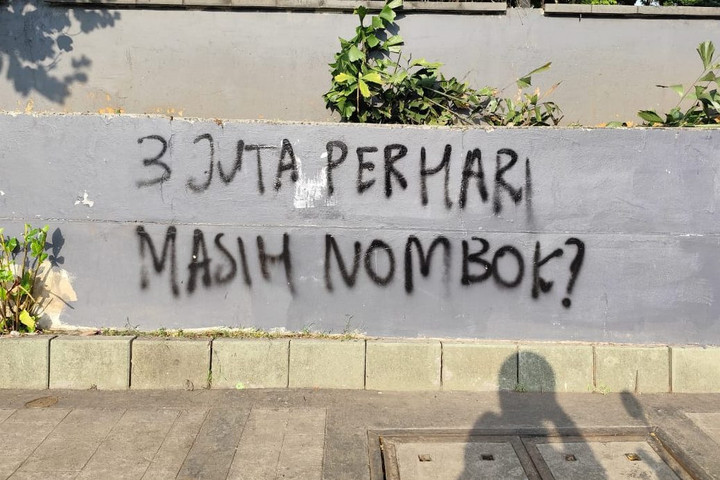 3 JUTA PERHARI
MASIH NOMBOK?